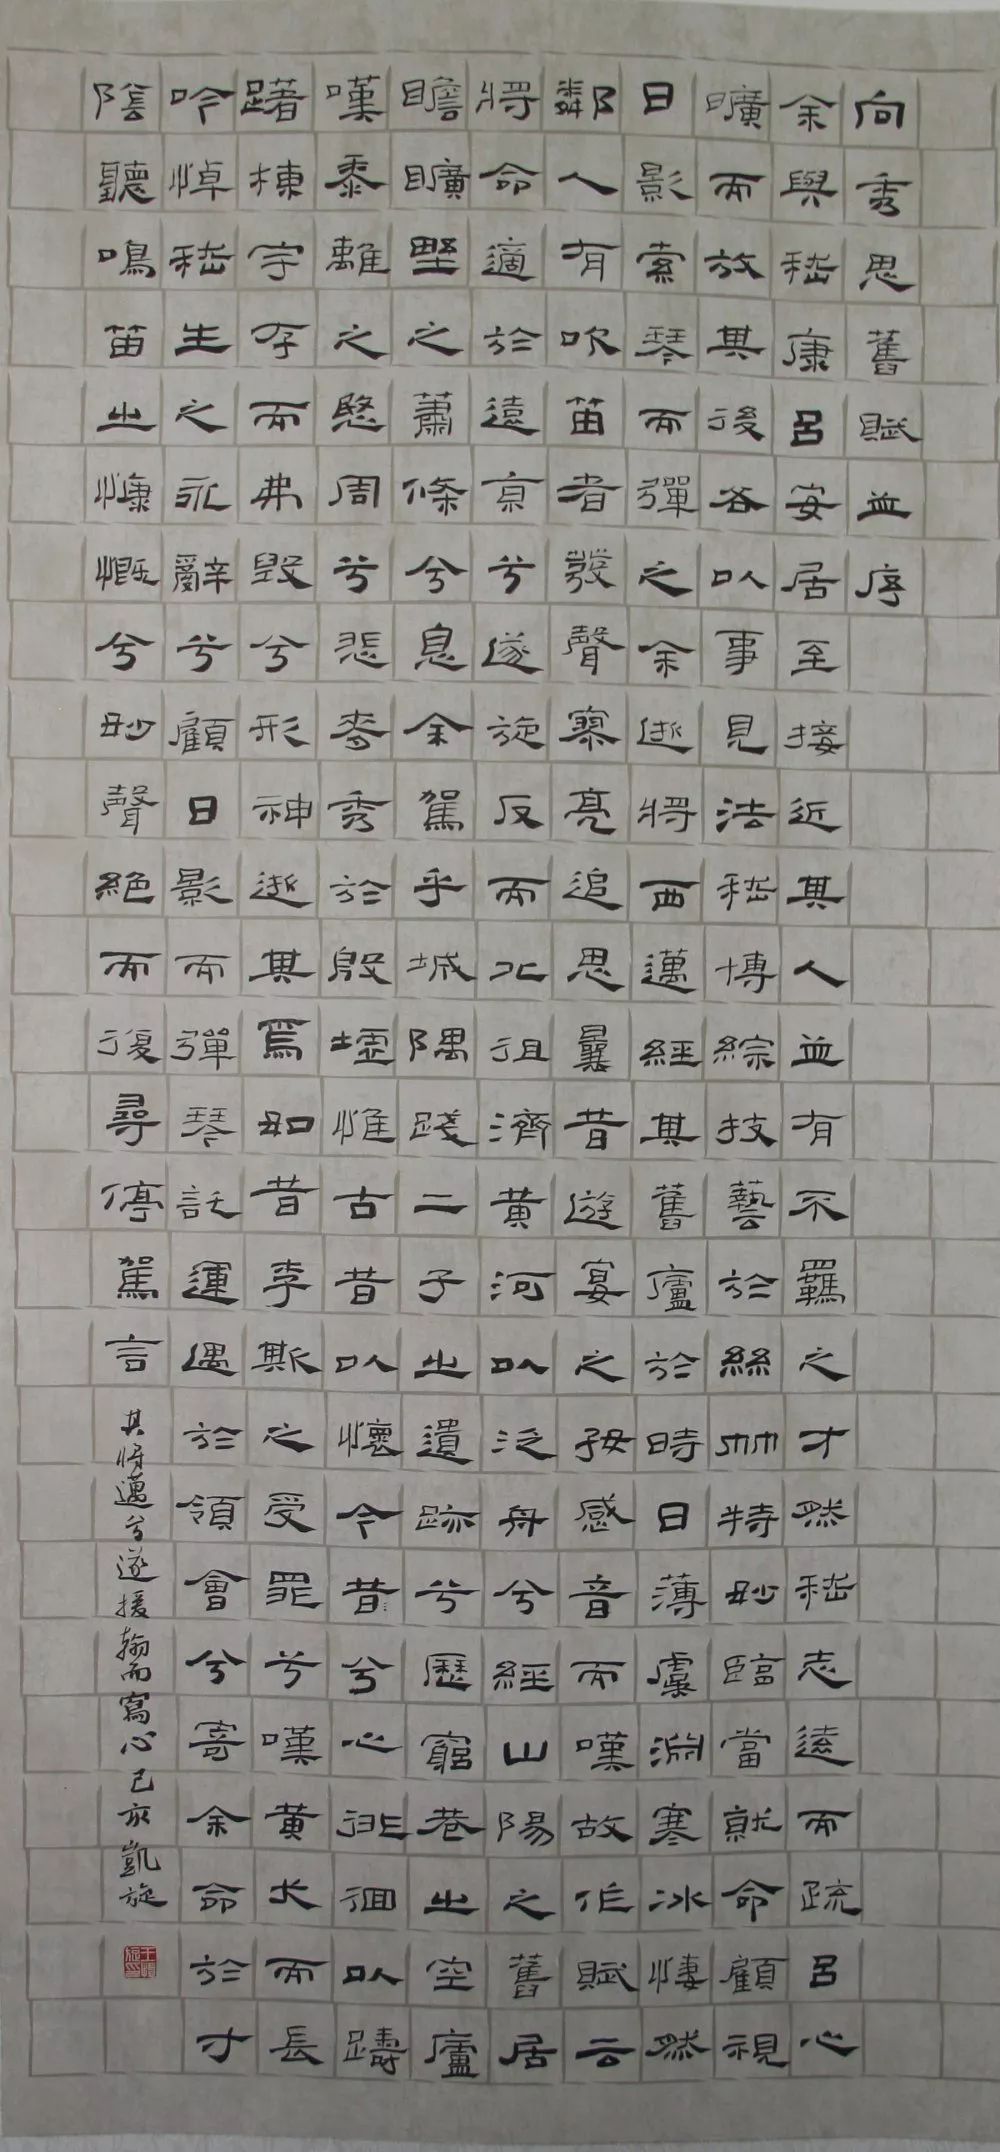 向秀思舊賦並序
余與嵇康呂安居至接近其人並有不羈之才然嵇志遠而疏呂心
曠而放其後各以事見法嵇博綜技藝於絲竹特妙臨當就命顧視
日影索琴而彈之余逝將西邁經其舊廬於時日薄虞淵寒冰悽然
鄰人有吹笛者發聲寥亮追思曩昔遊宴之好感音而嘆故作賦云
將命適於遠京兮遂旋反而北徂濟黃河以泛舟兮經山陽之舊居
瞻曠野之蕭條兮息余駕乎城隅踐二子之遺跡兮歷窮巷之空廬
嘆黍離之愍周兮悲麥秀於殷墟惟古昔以懷今昔兮心徘徊以躊
躇棟宇存而弗毀兮形神逝其焉如昔李斯之受罪兮嘆黃犬而長
吟悼嵇生之永辭兮顧日影而彈琴託運遇於領會兮寄余命於寸
陰聽鳴笛之慷慨兮妙聲絕而復尋停駕言其將邁兮遂援翰而寫心己亥凱旋